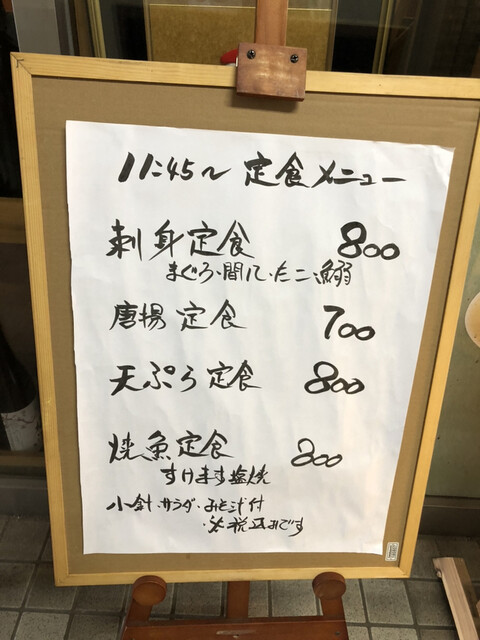 11:45〜 定食メニュー
刺身定食 800
まぐろ・間八・たこ・鰯
唐揚定食 700
天ぷら定食 800
焼魚定食 800
すけます塩焼
小針・サラダ・みそ汁付
・税込みです